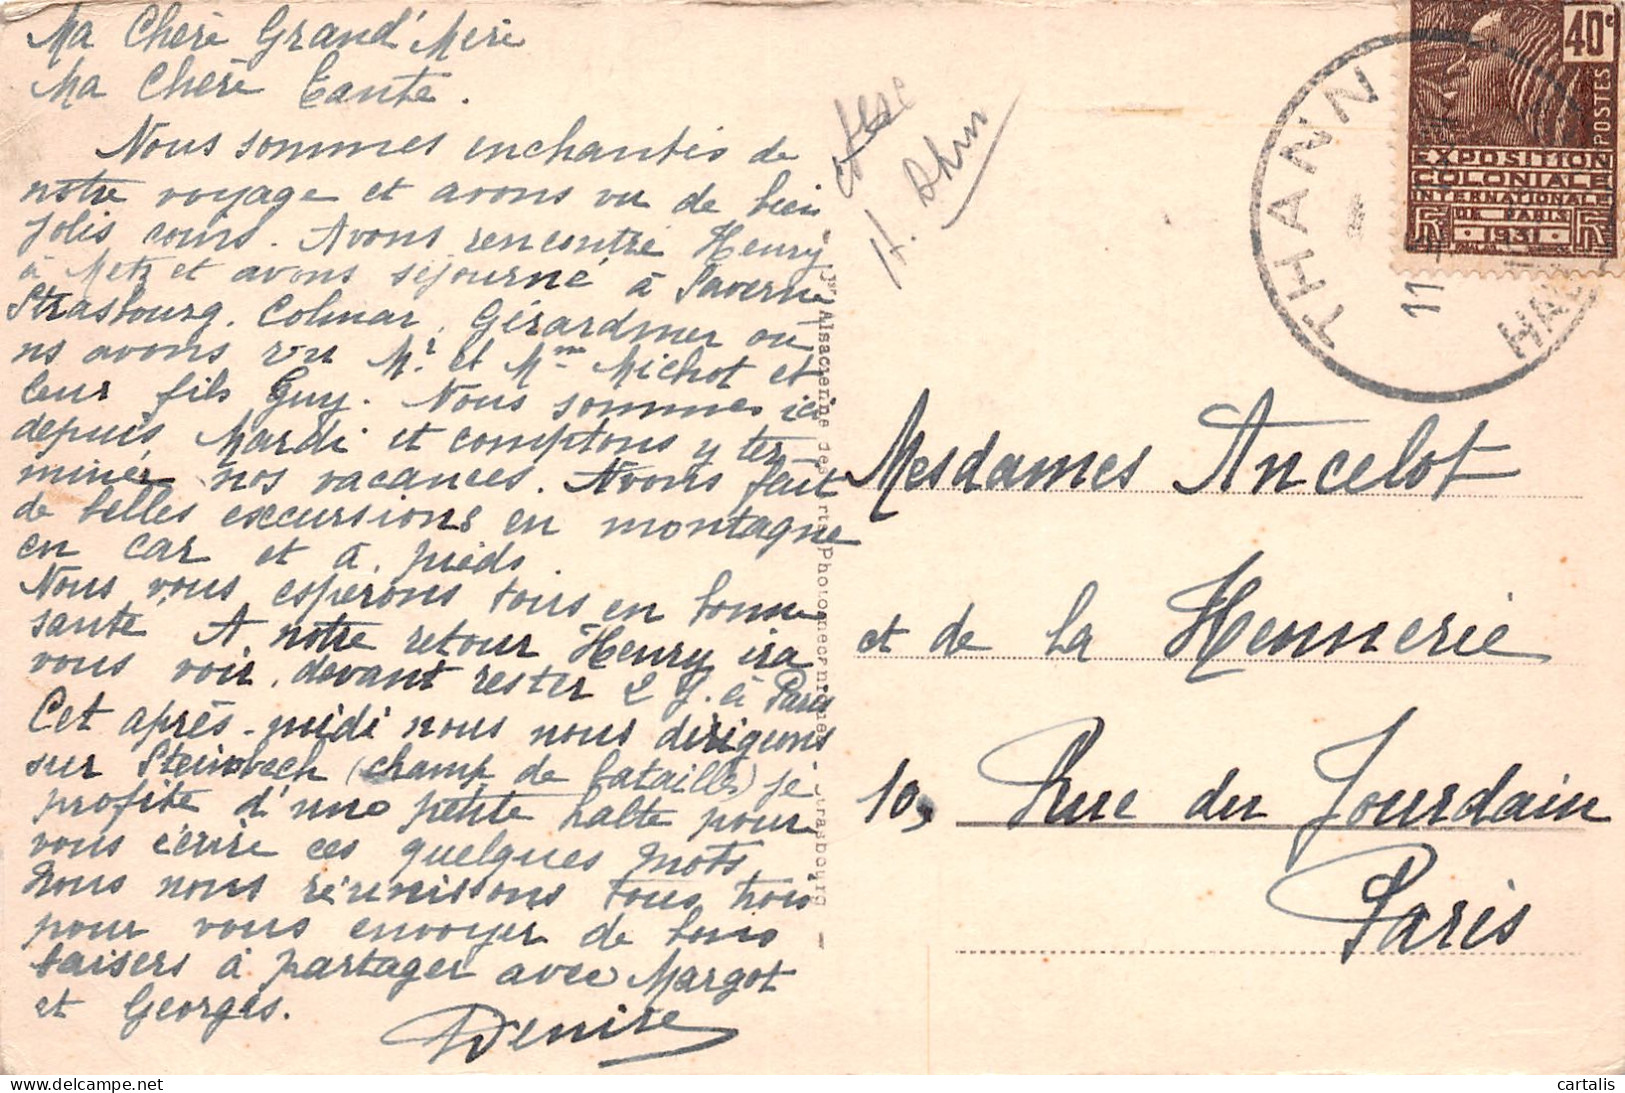 Ma Chère Grand'Mère
Ma Chère Tante.
Nous sommes enchantés de
notre voyage et avons vu de bien
jolis coins. Avons rencontré Henry
à Metz et avons séjourné à Saverne
Strasbourg. Colmar, Gérardmer où
ns avons vu Mr. et Mme Michot et
leur fils Guy. Nous sommes ici
depuis Mardi et comptons y ter-
miner nos vacances. Avons fait
de belles excursions en montagne
en car et à pieds.
Nous vous espérons tous en bonne
santé. A notre retour Henry ira
vous voir, devant rester 2 J. à Paris
Cet après-midi nous nous dirigeons
sur Steinbach (champ de bataille) je
profite d'une petite halte pour
vous écrire ces quelques mots.
Nous nous réunissons tous trois
pour vous envoyer de bons
baisers à partager avec Margot
et Georges.
Denise
Alsac
H. Rhin
Alsacienne des Arts Photomécaniques - Strasbourg
THANN
11
40c
POSTES
EXPOSITION
COLONIALE
INTERNATIONALE
DE PARIS
1931
RF RF
Mesdames Ancelot
et de la Hennerie
10, Rue du Jourdain
Paris
cartalis